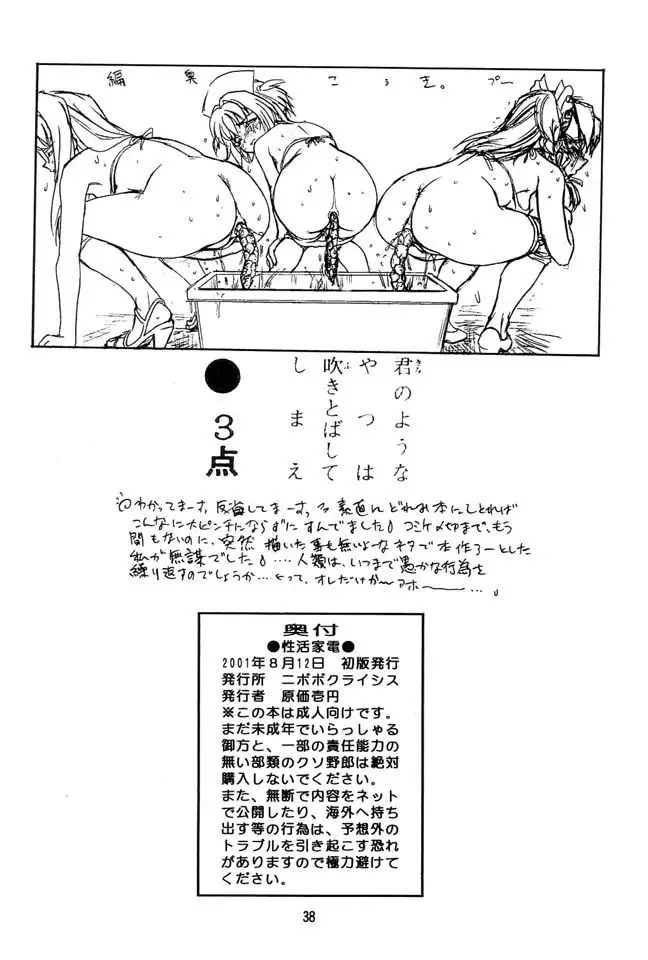 編集こうき。プー
君のような
やつは
吹きとばして
しまえ
●3点
わかってまーす、反省してまーす。 素直にどれみ本にしとけば
こんなに大ピンチにならずにすんでました。コミケ〆切まで、もう
間もないのに、突然描いた事も無いよーなネタで本作ろーとした
私が無謀でした。…人類は、いつまで愚かな行為を
繰り返すのでしょうか…とって、オレだけかーアホー…。
奥付
●性活家電●
2001年8月12日 初版発行
発行所 ニポポクライシス
発行者 原価壱円
※この本は成人向けです。
まだ未成年でいらっしゃる
御方と、一部の責任能力の
無い部類のクソ野郎は絶対
購入しないでください。
また、無断で内容をネット
で公開したり、海外へ持ち
出す等の行為は、予想外の
トラブルを引き起こす恐れ
がありますので極力避けて
ください。
38